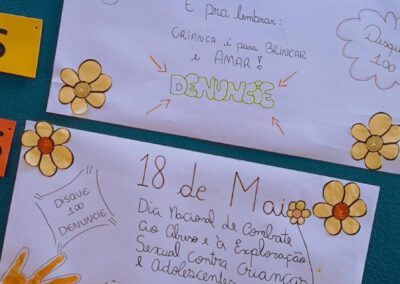 E pra lembrar:
CRIANÇA é para BRINCAR
e AMAR!
DENUNCIE
Disque
100
18 de Maio
DISQUE
100
DENUNCIE
Dia Nacional de Combate
ao Abuso e à Exploração
Sexual Contra Crianças
e Adolescentes